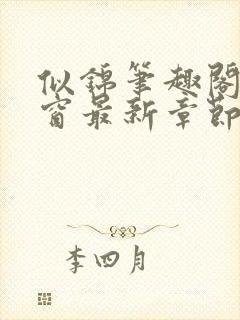 似锦笔趣阁
窗最新章节
李四月